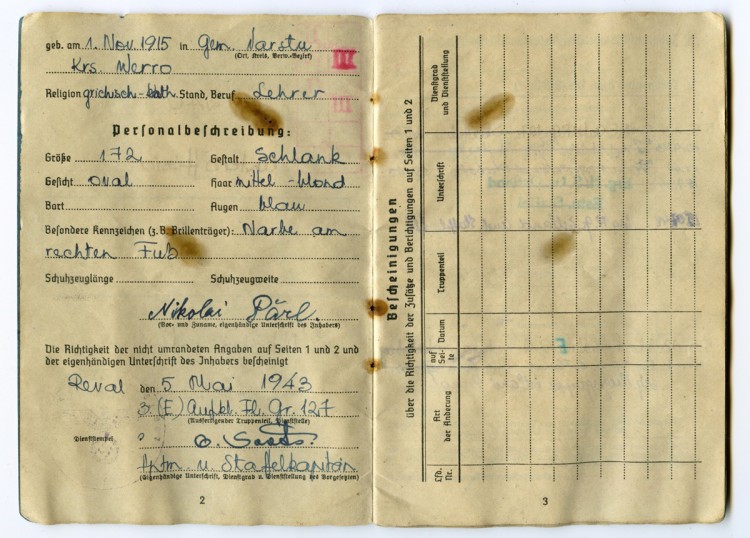 geb. am 1. Nov. 1915 in Gem. Varstu
(Ort, Kreis, Verw.-Bezirk)
Krs. Werro
III
Religion grichisch-kath. Stand, Beruf Lehrer
Personalbeschreibung:
Größe 172 Gestalt schlank
Gesicht oval Haar mittel-blond
Bart Augen blau
Besondere Kennzeichen (z.B. Brillenträger): Narbe am
rechten Fuß
Schuhzeuglänge Schuhzeugweite
Nikolai Pärl.
(Vor- und Zuname, eigenhändige Unterschrift des Inhabers)
Die Richtigkeit der nicht umrandeten Angaben auf Seiten 1 und 2 und
der eigenhändigen Unterschrift des Inhabers bescheinigt
Reval den 5. Mai 1943
3.(E) Aufkl. Fl. Gr. 127
(Ausfertigender Truppenteil, Dienststelle)
Dienststempel
Hptm. u. Stafelkapitän
(Eigenhändige Unterschrift, Dienstgrad u. Dienststellung des Vorgesetzten)
2
Bescheinigungen
über die Richtigkeit der Zusätze und Berichtigungen auf Seiten 1 und 2
Lfd. Nr.
Art der Änderung
auf Seite
Datum
Truppenteil
Unterschrift
Dienstgrad und Dienststellung
3